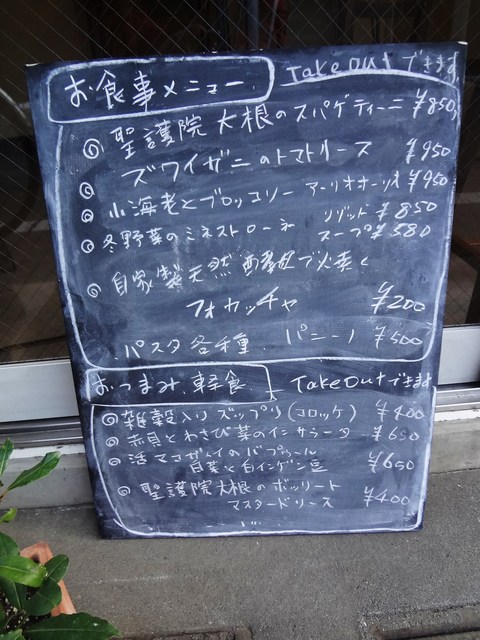 お食事メニュー Take Outできます
◎聖護院大根のスパゲティーニ ¥850
◎ズワイガニのトマトソース ¥950
◎小海老とブロッコリー アーリオオーリオ ¥950
◎冬野菜のミネストローネ リゾット ¥850
スープ ¥580
◎自家製天然酵母で焼く
フォカッチャ ¥200
パスタ各種 パニーノ ¥500
おつまみ、軽食 Take Outできます
◎雑穀入りズップリ(コロッケ) ¥400
◎赤貝とわさび菜のインサラータ ¥650
◎活マコガレイのバプール
白菜と白インゲン豆 ¥650
◎聖護院大根のボッリート
マスタードソース ¥400